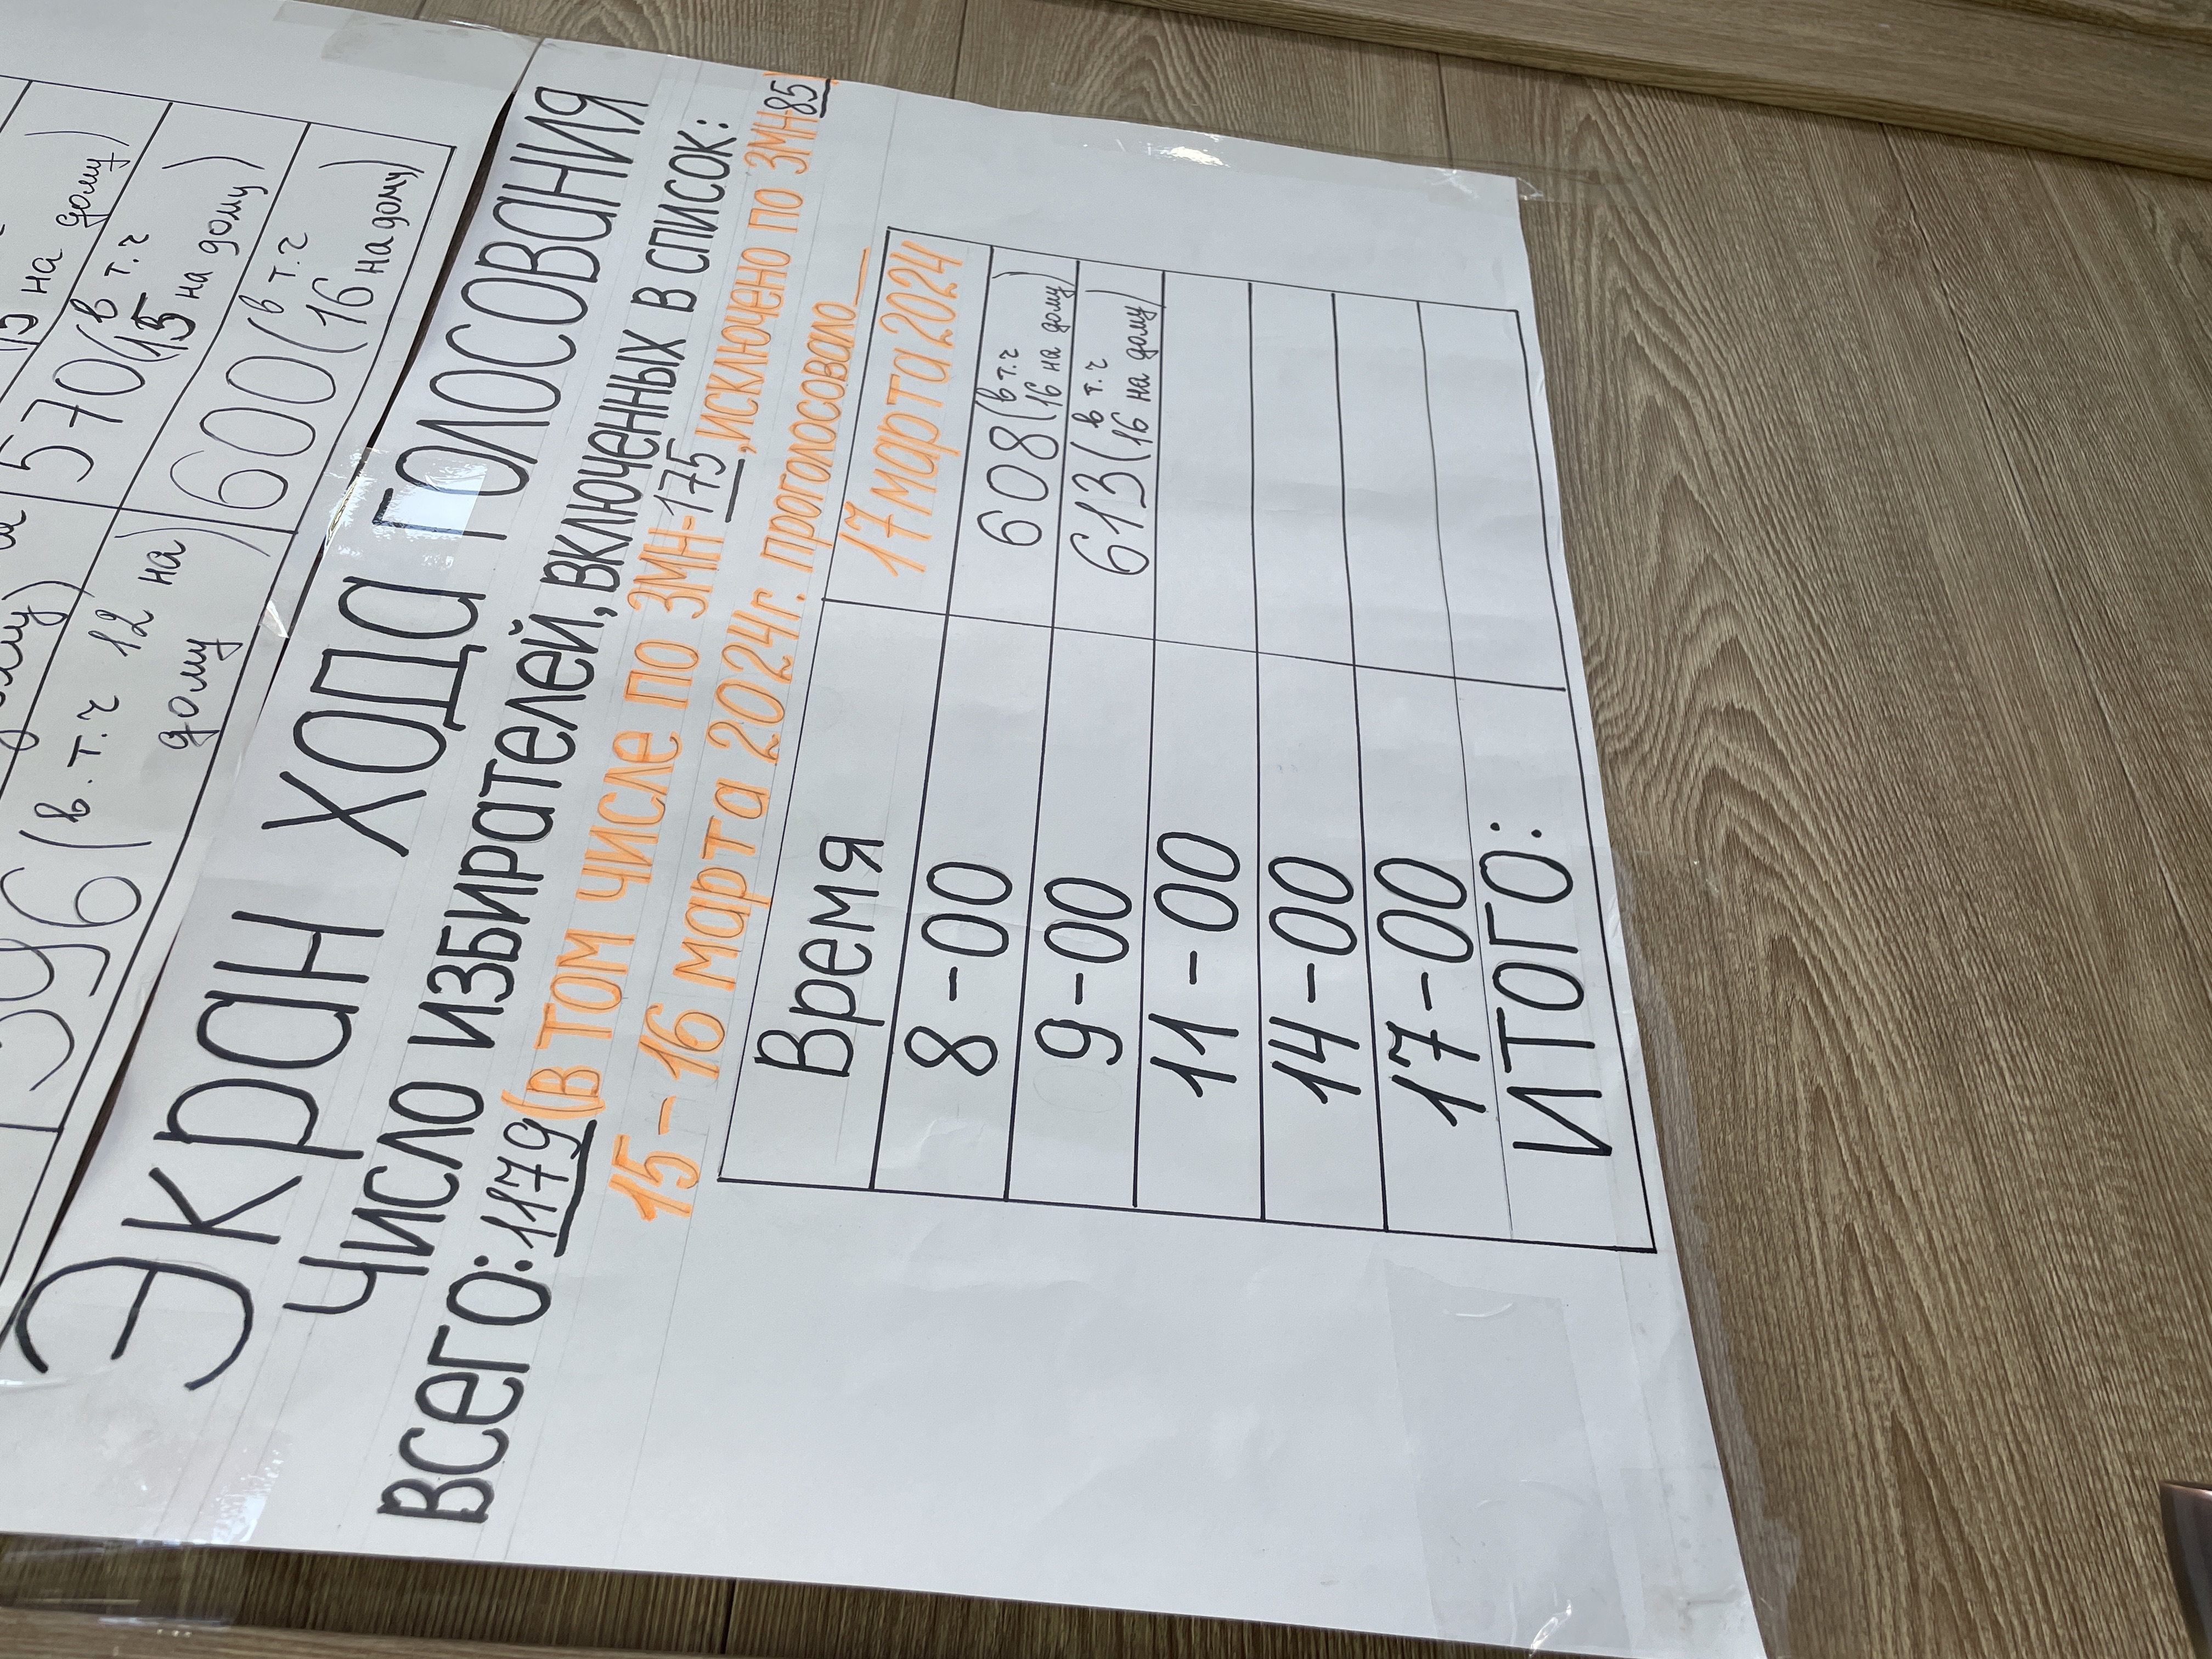 на дому)
396 (в.т.ч 12 на
дому)
570 (в т.ч
15 на дому)
600 (в т.ч
16 на дому)
Экран ХОДа ГОЛОСОВАНИЯ
Число избирателей, включенных в список:
ВСЕГО: 1179 (в том числе по ЗМН-175, исключено по ЗМН 85)
15-16 марта 2024г. проголосовало__
Время 17 марта 2024
8-00 608 (в т.ч 16 на дому)
9-00 613 (в т.ч 16 на дому)
11-00
14-00
17-00
ИТОГО: